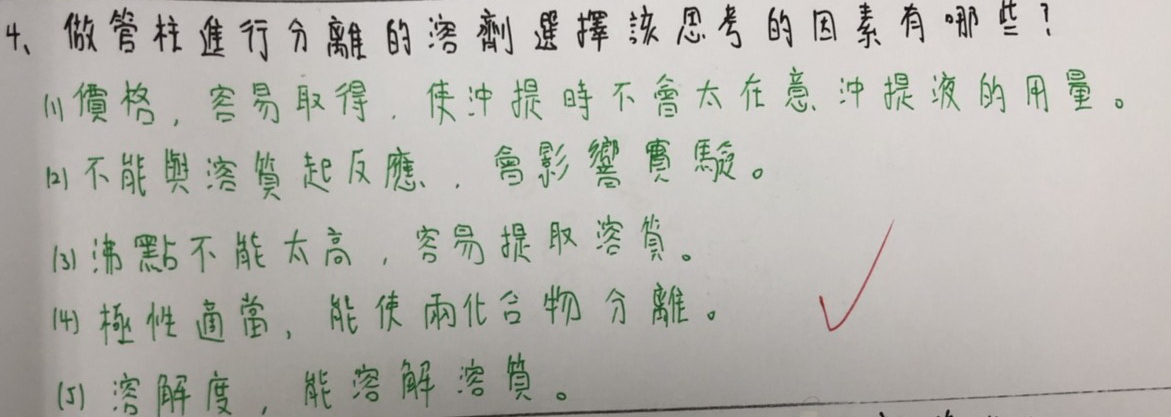 4、做管柱進行分離的溶劑選擇該思考的因素有哪些？
(1)價格，容易取得，使沖提時不會太在意沖提液的用量。
(2)不能與溶質起反應，會影響實驗。
(3)沸點不能太高，容易提取溶質。
(4)極性適當，能使兩化合物分離。
(5)溶解度，能溶解溶質。